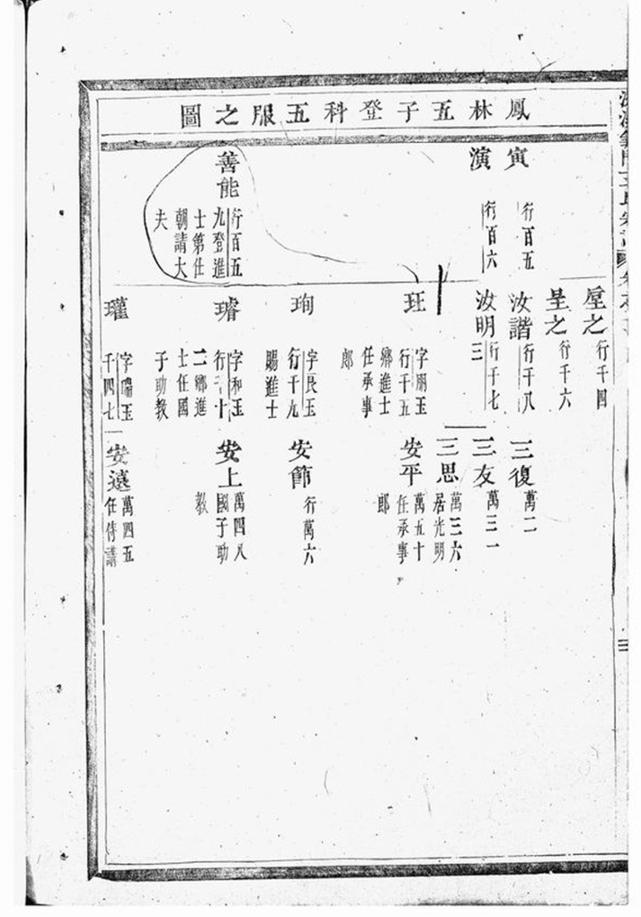 鳳林五子登科五服之圖
寅
行百五
演
行百六
善能
行百五
九登進
士第仕
朝請大
夫
垕之
行千四
呈之
行千六
汝諧
行千八
汝明
行千七
三
玨
字朋玉
行千五
鄉進士
任承事
郎
珣
字良玉
行千九
賜進士
璿
字和玉
行千十
二鄉進
士任國
子助教
瓘
字陽玉
千四七
三復
萬二
三友
萬三一
三思
萬三六
居光明
安平
萬五十
任承事
郎
安節
行萬六
安上
萬四八
國子助
教
安遠
萬四五
任侍講